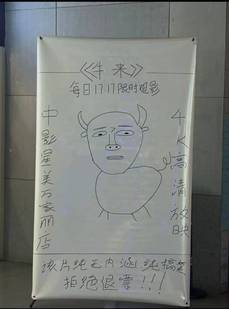 《牛来》
每日17:17限时观影
中影星美万象丽店
4K高清放映
该片纯无内涵纯搞笑
拒绝退票!!!